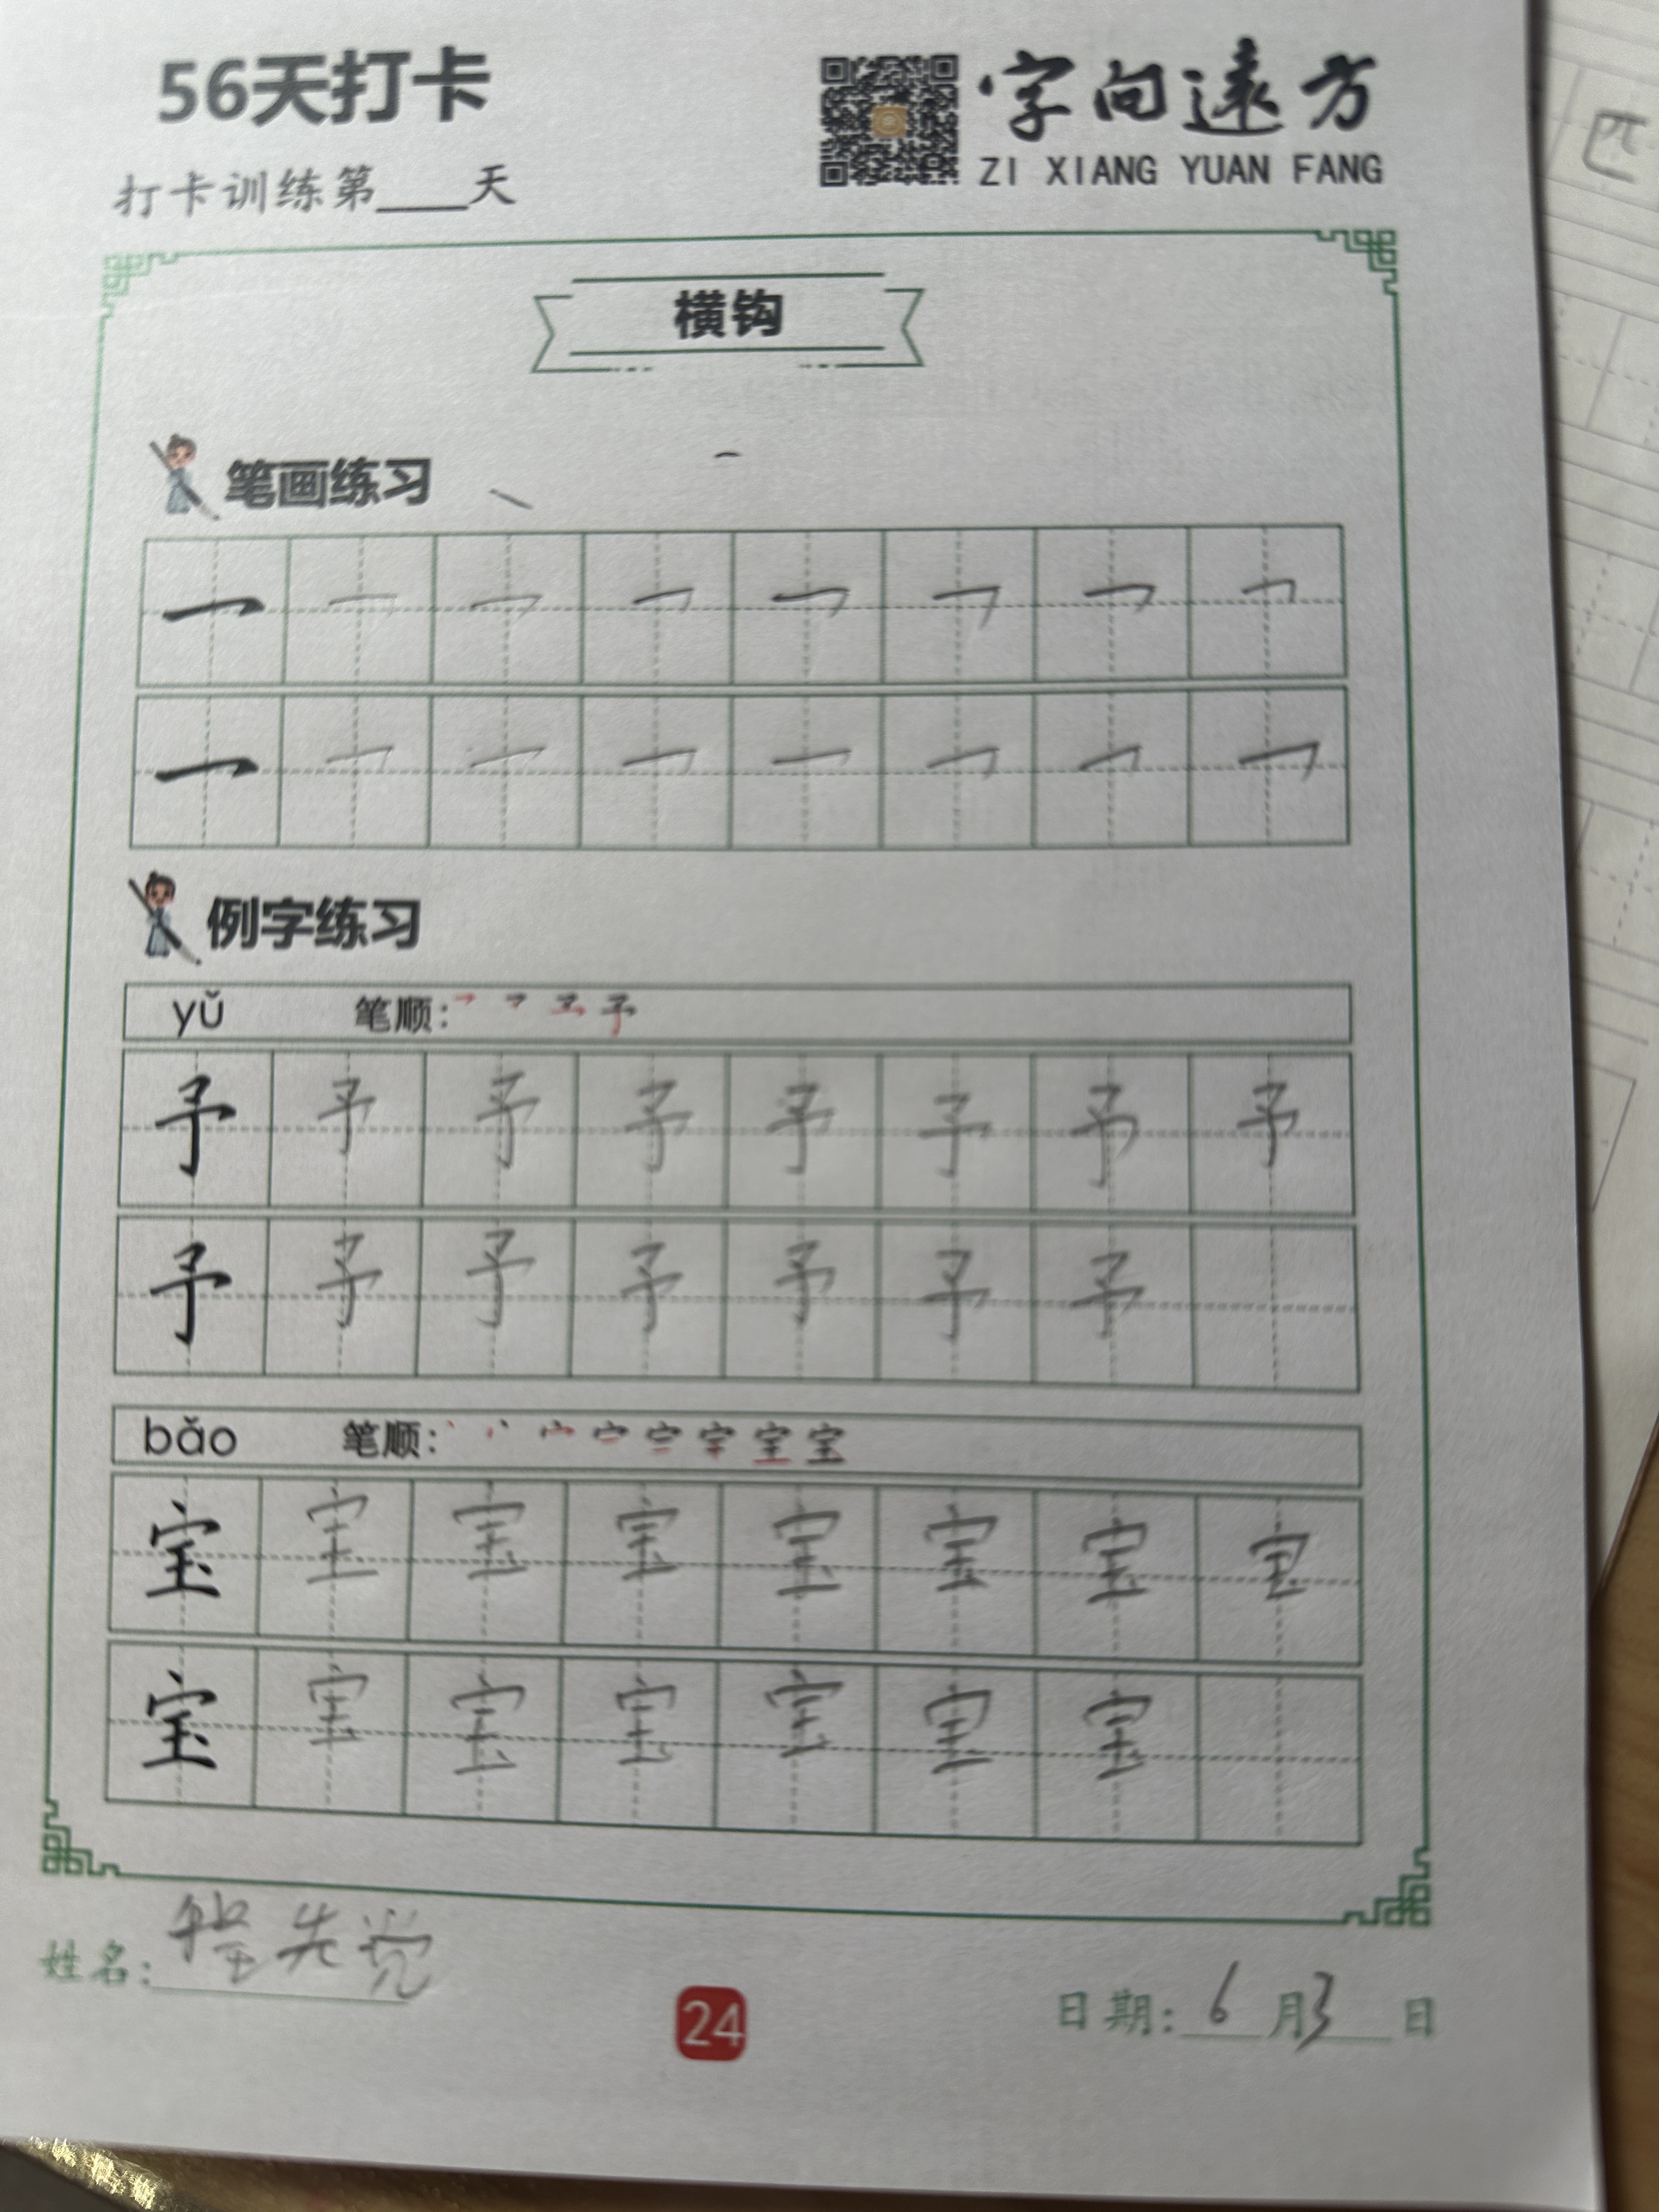 56天打卡
字向遠方
ZI XIANG YUAN FANG
打卡训练第____天
横钩
笔画练习
例字练习
yǔ 笔顺:
予 予 予 予 予 予 予 予
予 予 予 予 予 予 予
bǎo 笔顺:
宝 宝 宝 宝 宝 宝 宝 宝
宝 宝 宝 宝 宝 宝 宝
姓名: 先党
24
日期: 6 月 3 日
匹